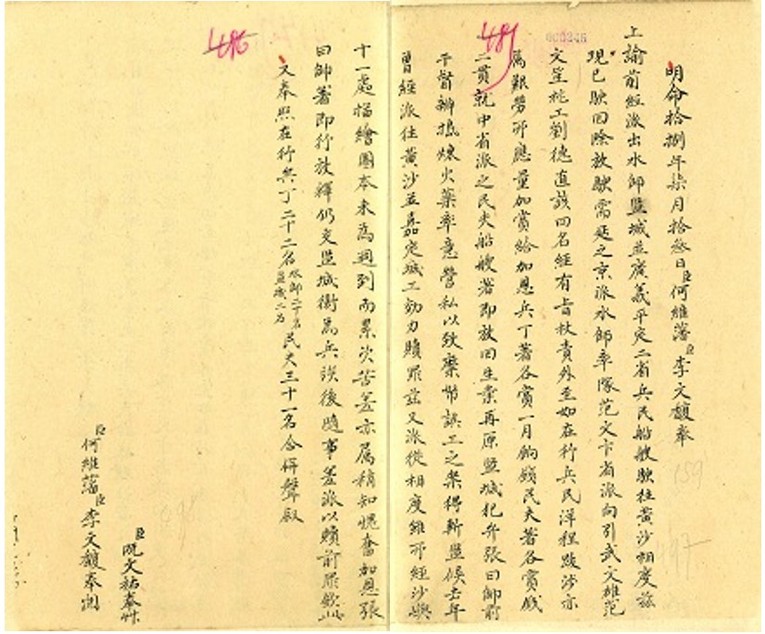 明命拾捌年柒月拾叁日臣何維藩臣李文馥奉
上諭前經派出水師監城並廣義平定二省兵民船艘駛往黃沙相度茲
現已駛回除放駛需延之京派水師率隊范文卞省派向引武文雄范
文笙桃工劉德直該四名經有旨杖責外至如在行兵民洋程跋涉亦
屬艱勞亦應量加賞給加恩兵丁著各賞一月餉錢民夫著各賞錢
二貫就中省派之民夫船艘著即放回生業再原監城犯弁張曰帥前
于督辦挑煉火藥率意營私以致糜幣誤工之案得斬監候去年
曾經派往黃沙並嘉定城工効力贖罪茲又派從相度雖所經沙嶼
十一處描繪圖本未為週到而累次苦差亦屬稍知愧奮加恩張
曰帥著即行放釋仍交監城衛為兵俟後隨事差派以贖前罪欽此
又奉照在行兵丁二十二名水師二十名監城二名民夫三十一名合併聲敘
臣阮文祐奉艸
臣何維藩臣李文馥奉閱
486
000246